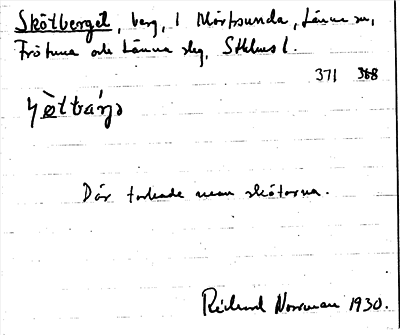 Skötberget, berg, i Mörtsunda, Länna sn,
Frötuna och Länna slg, Sthlms l.
371 368
Där torkade man skötarna.
Richard Norrman 1930.